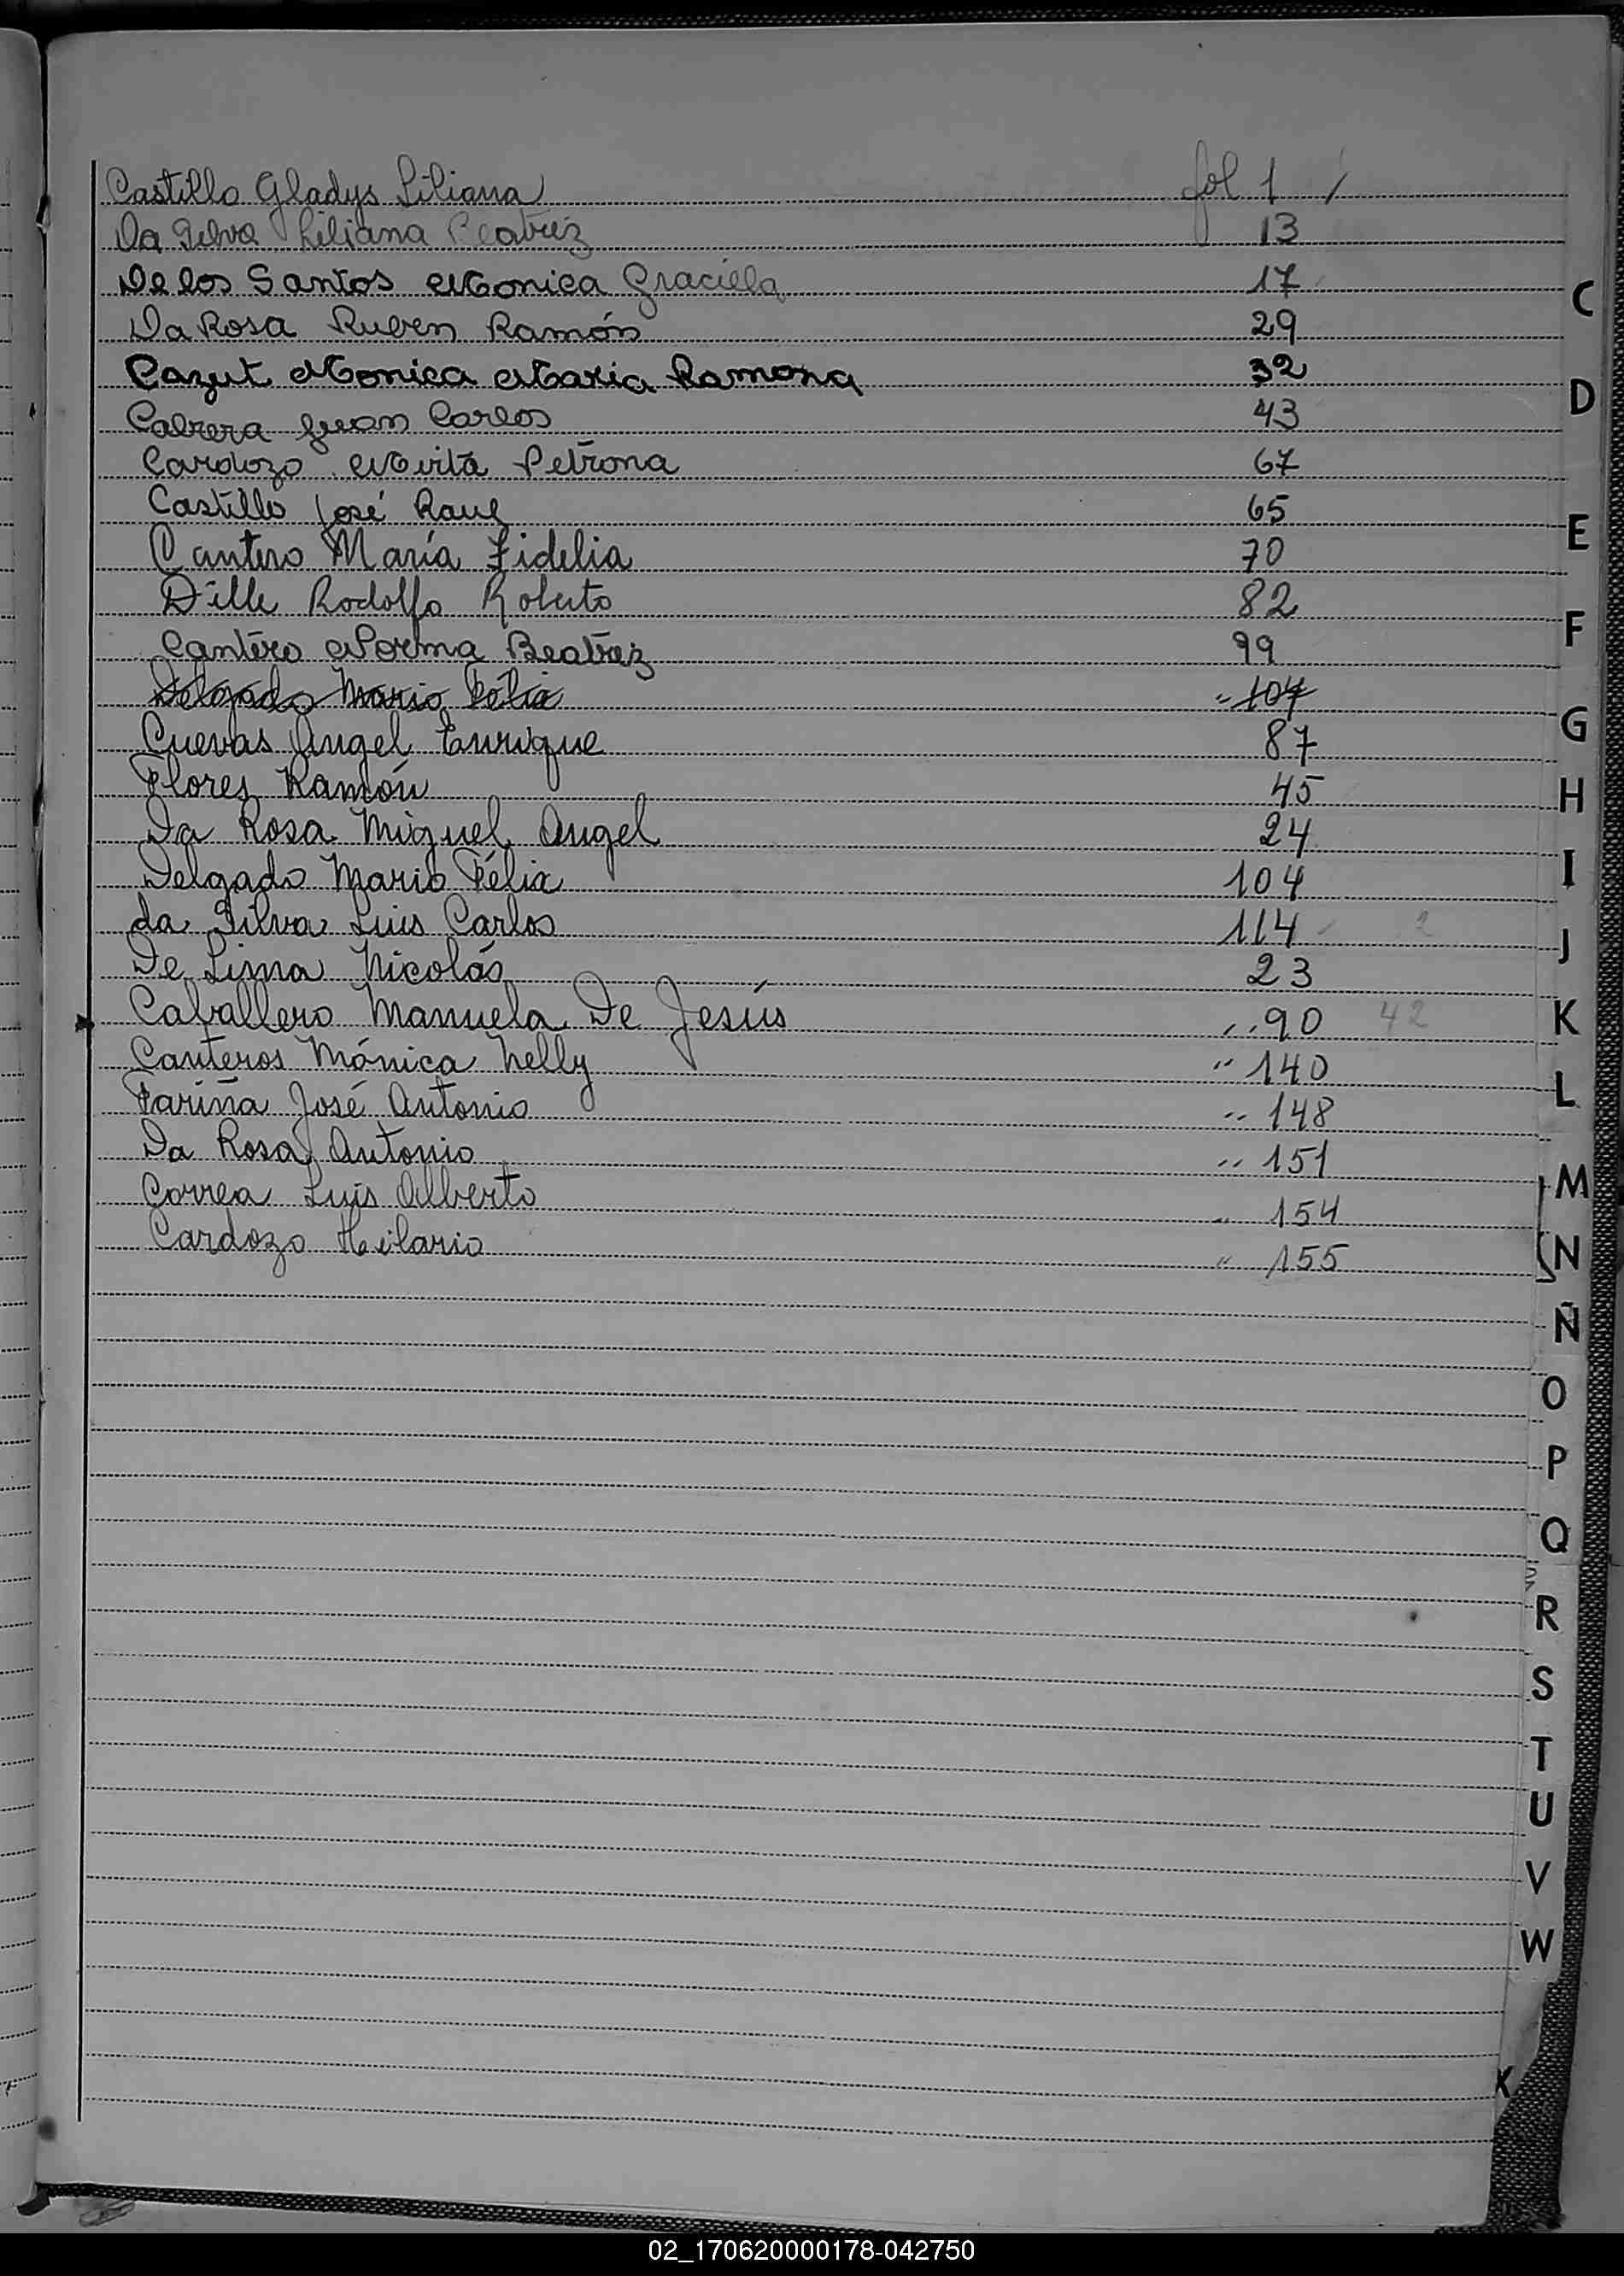 Castillo Gladys Liliana fol 1 /
Da Silva Liliana Beatriz 13
De los Santos Monica Graciela 17
Da Rosa Ruben Ramón 29
Cazut Monica Maria Ramona 32
Cabrera Juan Carlos 43
Cardozo Mirta Petrona 67
Castillo José Raul 65
Cantero María Fidelia 70
Dille Rodolfo Roberto 82
Cantero Norma Beatriz 99
Delgado Mario Félix " 104
Cuevas Angel Enrique 87
Flores Ramón 45
Da Rosa Miguel Angel 24
Delgado Mario Félix 104
da Silva Luis Carlos 114 2
De Lima Nicolás 23
Caballero Manuela De Jesús " 90 42
Canteros Mónica Nelly " 140
Fariña José Antonio " 148
Da Rosa Antonio " 151
Correa Luis Alberto " 154
Cardozo Hilario " 155
C
D
E
F
G
H
I
J
K
L
M
N
Ñ
O
P
Q
R
S
T
U
V
W
X
02_170620000178-042750